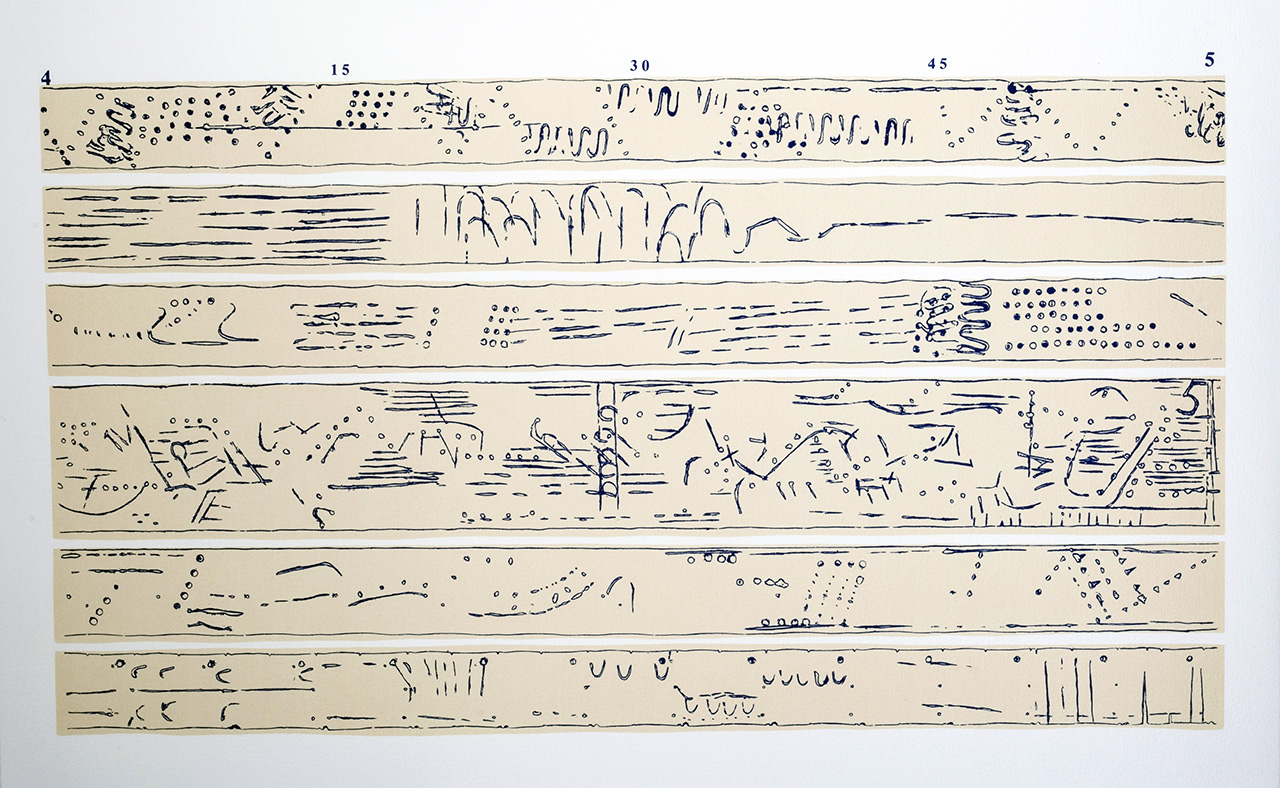 4 15 30 45 5
5